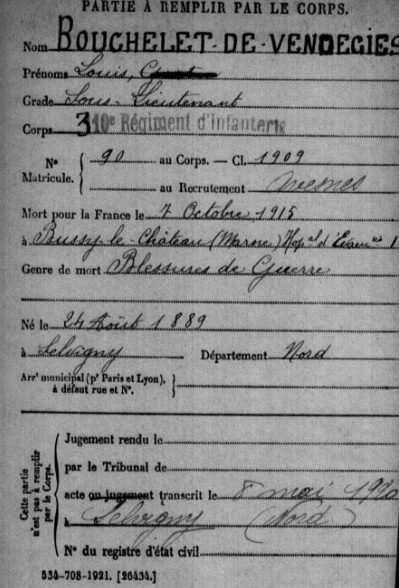 PARTIE À REMPLIR PAR LE CORPS.
Nom BOUCHELET-DE-VENDEGIES
Prénoms Louis,
Grade Sous-Lieutenant
Corps 310e Régiment d'Infanterie
N° Matricule. { 90 au Corps. — Cl. 1909
au Recrutement Avesnes
Mort pour la France le 7 Octobre 1915
à Bussy le Château (Marne) Hopal d'Evacon 1
Genre de mort Blessures de Guerre
Né le 24 Août 1889
à Selvigny Département Nord
Arrt municipal (pr Paris et Lyon), à défaut rue et N°.
Cette partie n'est pas à remplir par le Corps.
Jugement rendu le
par le Tribunal de
acte ou jugement transcrit le 8 mai 1920
à Selvigny (Nord)
N° du registre d'état civil
534-708-1921. [26434.]